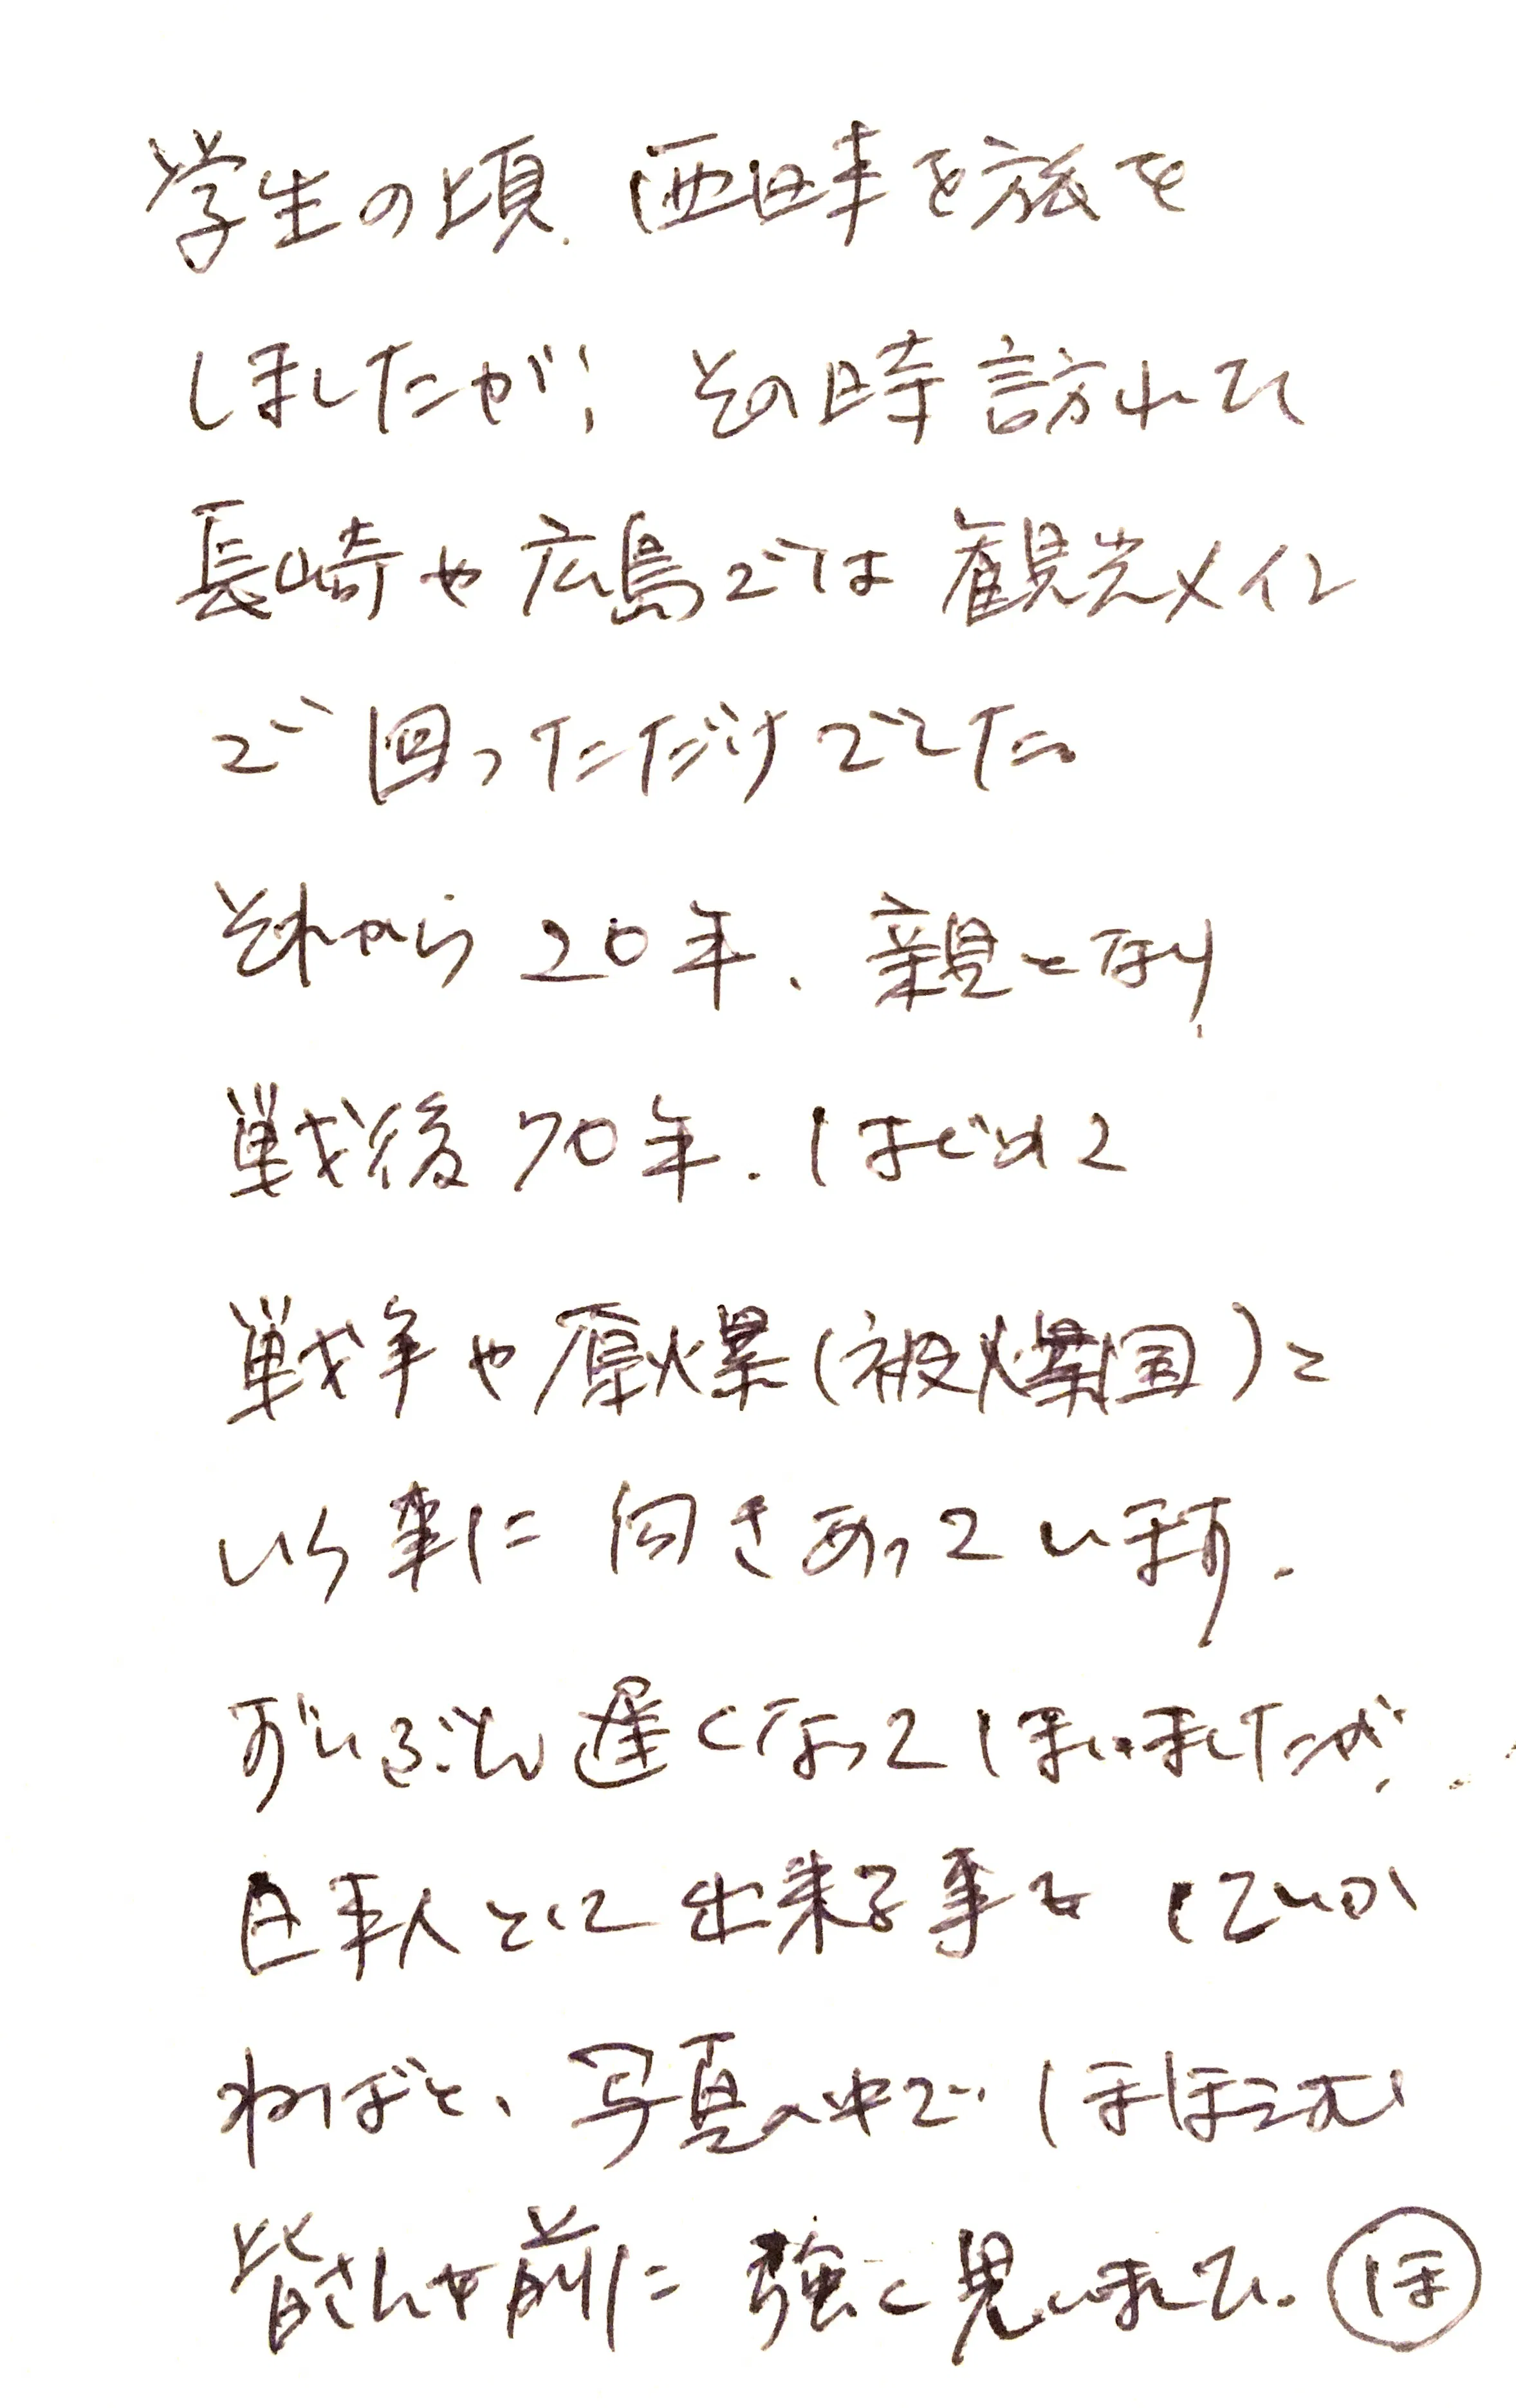 学生の頃、西日本を旅を
しましたが、その時訪れた
長崎や広島では観光メイン
で回っただけでした。
それから20年、親となり、
戦後70年、はじめて
戦争や原爆(被爆国)と
いう事に向きあっています。
ずいぶん遅くなってしまいましたが、
日本人として出来る事をしていか
ねばと、写真の中でほほえむ
皆さんを前に強く思いました。 ほ